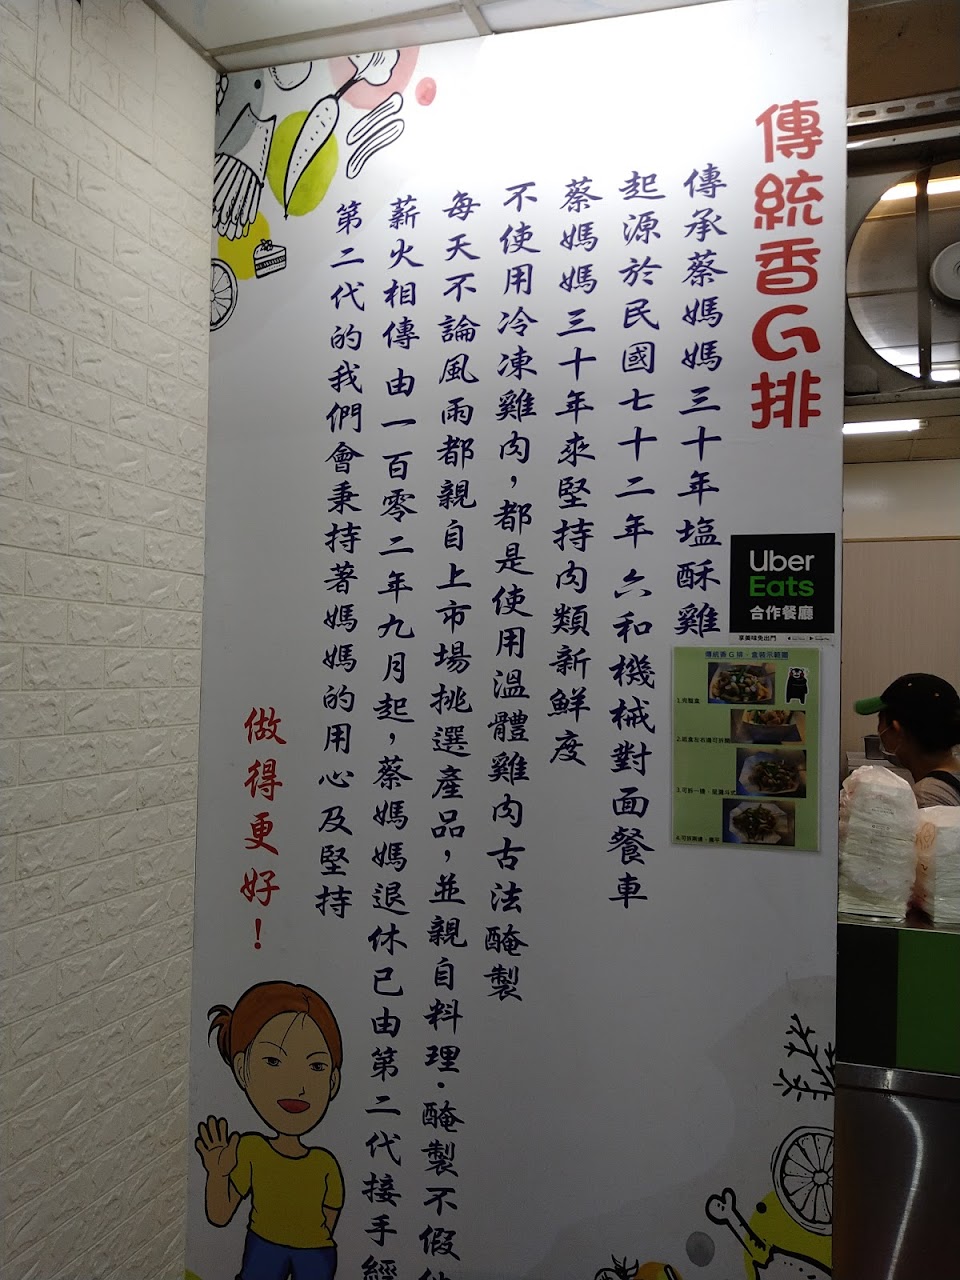 傳統香G排
傳承蔡媽媽三十年塩酥雞
起源於民國七十二年六和機械對面餐車
蔡媽媽三十年來堅持肉類新鮮度
不使用冷凍雞肉，都是使用溫體雞肉古法醃製
每天不論風雨都親自上市場挑選產品，並親自料理．醃製不假
薪火相傳由一百零二年九月起，蔡媽媽退休已由第二代接手經
第二代的我們會秉持著媽媽的用心及堅持
做得更好！
Uber
Eats
合作餐廳
享美味免出門
傳統香G排．盒裝示範圖